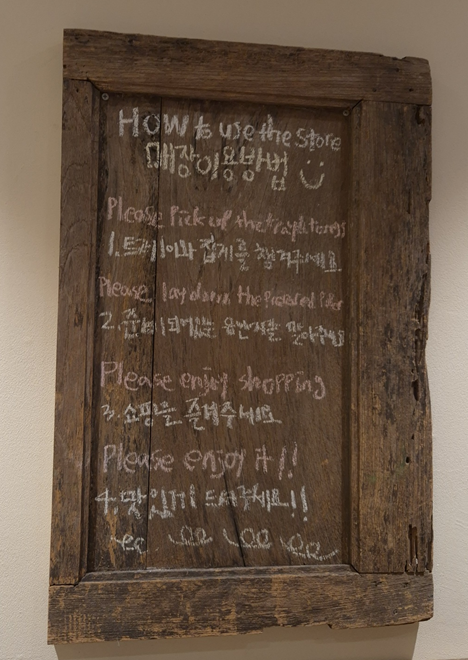 How to use the Store
매장이용방법
Please Pick up the tray & tongs
1. 트레이와 집게를 챙겨주세요.
Please lay down the Prepared
2. 준비되어있는 음반지를 깔아주세요
Please enjoy shopping
3. 쇼핑을 즐겨주세요
Please enjoy it!!
4. 맛있게 드셔주세요!!